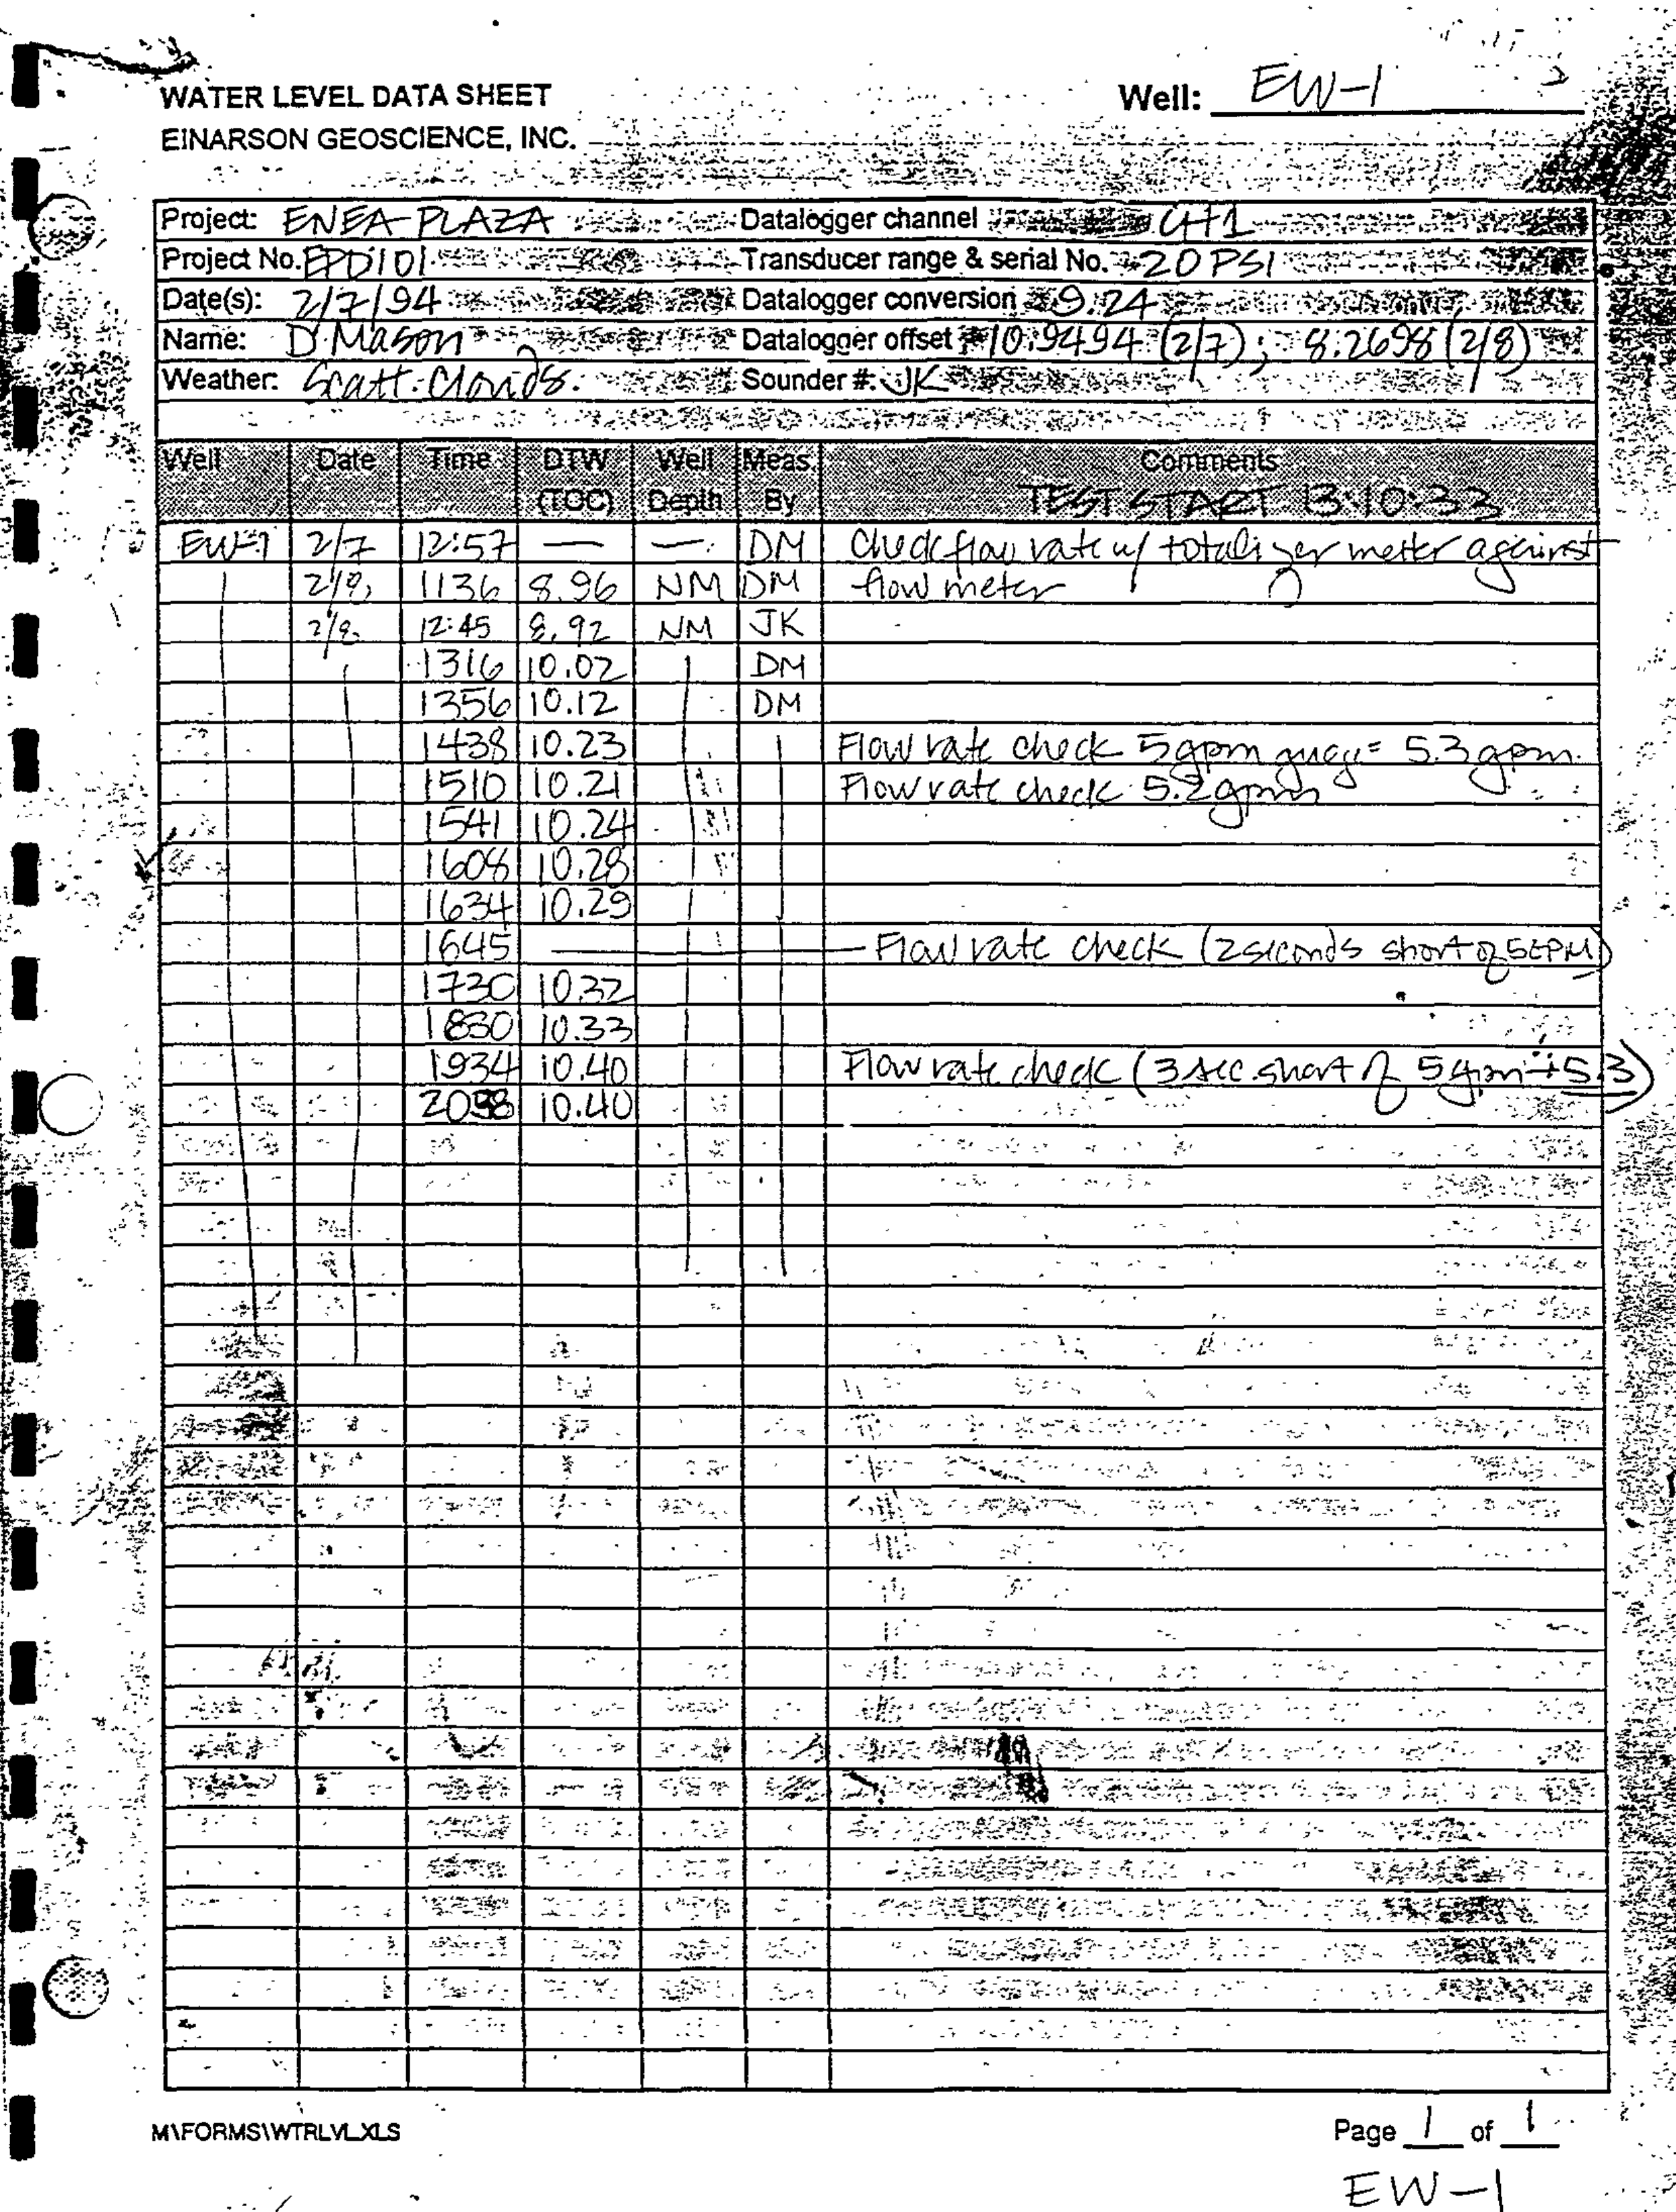 WATER LEVEL DATA SHEET
Well: EW-1
EINARSON GEOSCIENCE, INC.
Project: ENEA PLAZA Datalogger channel CH1
Project No. EPD101 Transducer range & serial No. 20 PSI
Date(s): 2/7/94 Datalogger conversion 9.24
Name: D Mason Datalogger offset 10.9494 (2/7); 8.2698 (2/8)
Weather: Scatt. Clouds. Sounder #: JK
Well Date Time DTW Well Meas Comments
(TOC) Depth By TEST START 13:10:33
EW-1 2/7 12:57 — — DM Check flow rate w/ totalizer meter against
2/8 1136 8.96 NM DM flow meter
2/8 12:45 8.92 NM JK
1316 10.02 DM
1356 10.12 DM
1438 10.23 Flow rate check 5gpm guage = 5.3 gpm.
1510 10.21 Flow rate check 5.2gpm
1541 10.24
1608 10.28
1634 10.29
1645 — Flow rate check (2 seconds short of 5GPM)
1730 10.32
1830 10.33
1934 10.40 Flow rate check (3 sec. short of 5 gpm 5.3)
10.40
M\FORMS\WTRLVL.XLS
Page 1 of 1
EW-1